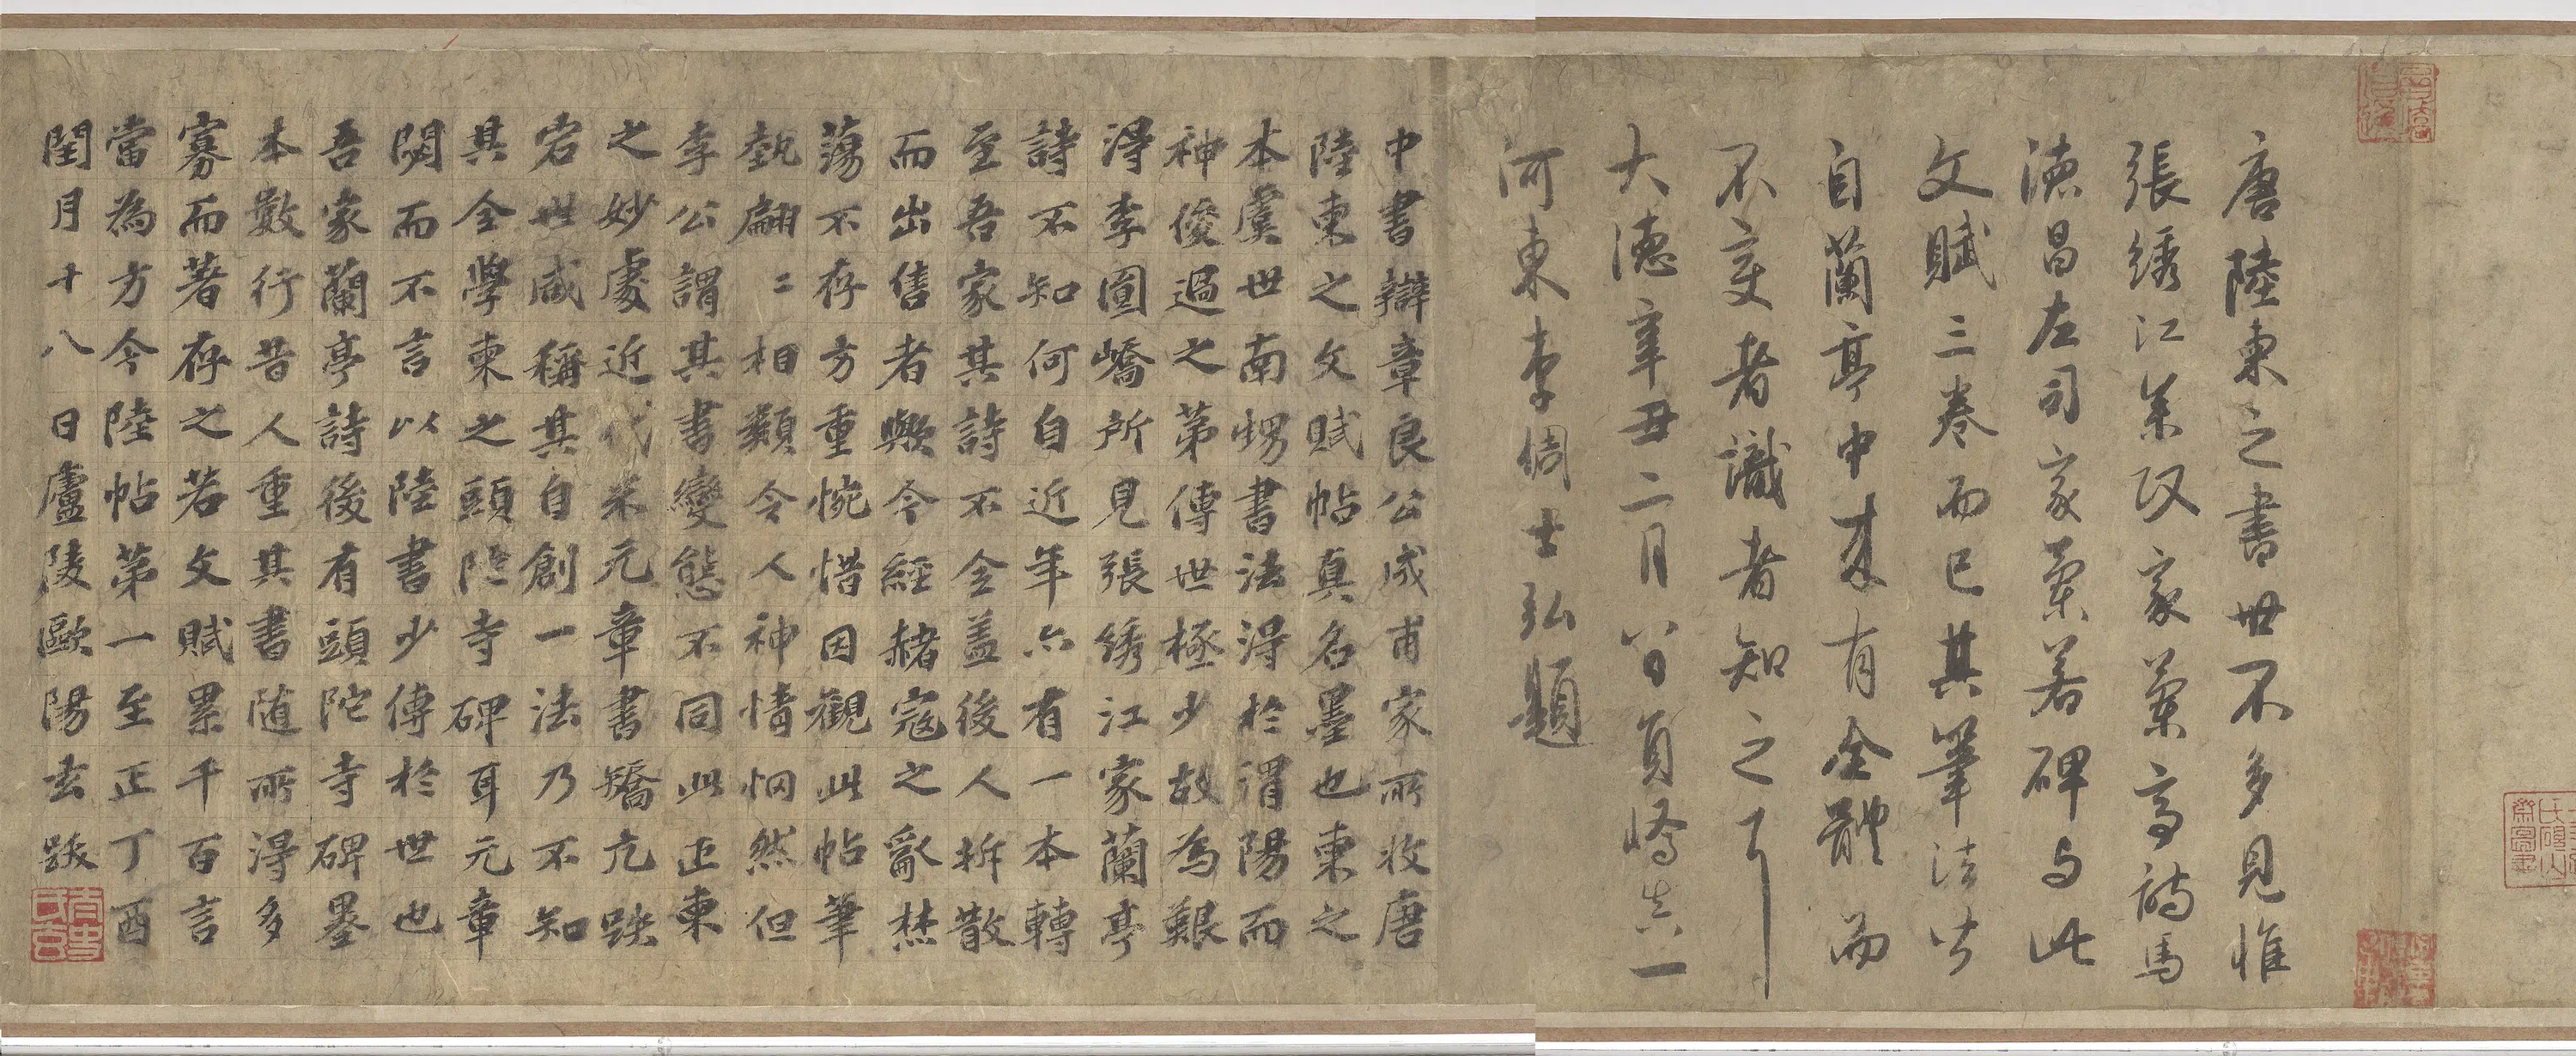 唐陸柬之書世不多見惟
張綉江參政家蘭亭詩馬
德昌左司家蘭若碑与此
文賦三卷而已其筆法皆
自蘭亭中來有全體而
不變者識者知之耳
大德辛丑二月
河東李倜士弘題
中書辯章良公成甫家所收唐
陸柬之文賦帖真名墨也柬之
本虞世南甥書法得於渭陽而
神俊過之第傳世極少故為艱
得李圓嶠所見張綉江家蘭亭
詩不知何自近年亦有一本轉
至吾家其詩不全蓋後人拆散
而出售者歟今經赭寇之亂焚
蕩不存方重惋惜因觀此帖筆
埶翩〻相類令人神情惘然但
李公謂其書變態不同此正柬
之妙處近代米元章書矯亢跌
宕世咸稱其自創一法乃不知
其全學柬之頭陀寺碑耳元章
閟而不言以陸書少傳於世也
吾家蘭亭詩後有頭陀寺碑墨
本數行昔人重其書隨所得多
寡而著存之若文賦累千百言
當為方今陸帖第一至正丁酉
閏月十八日廬陵歐陽玄跋